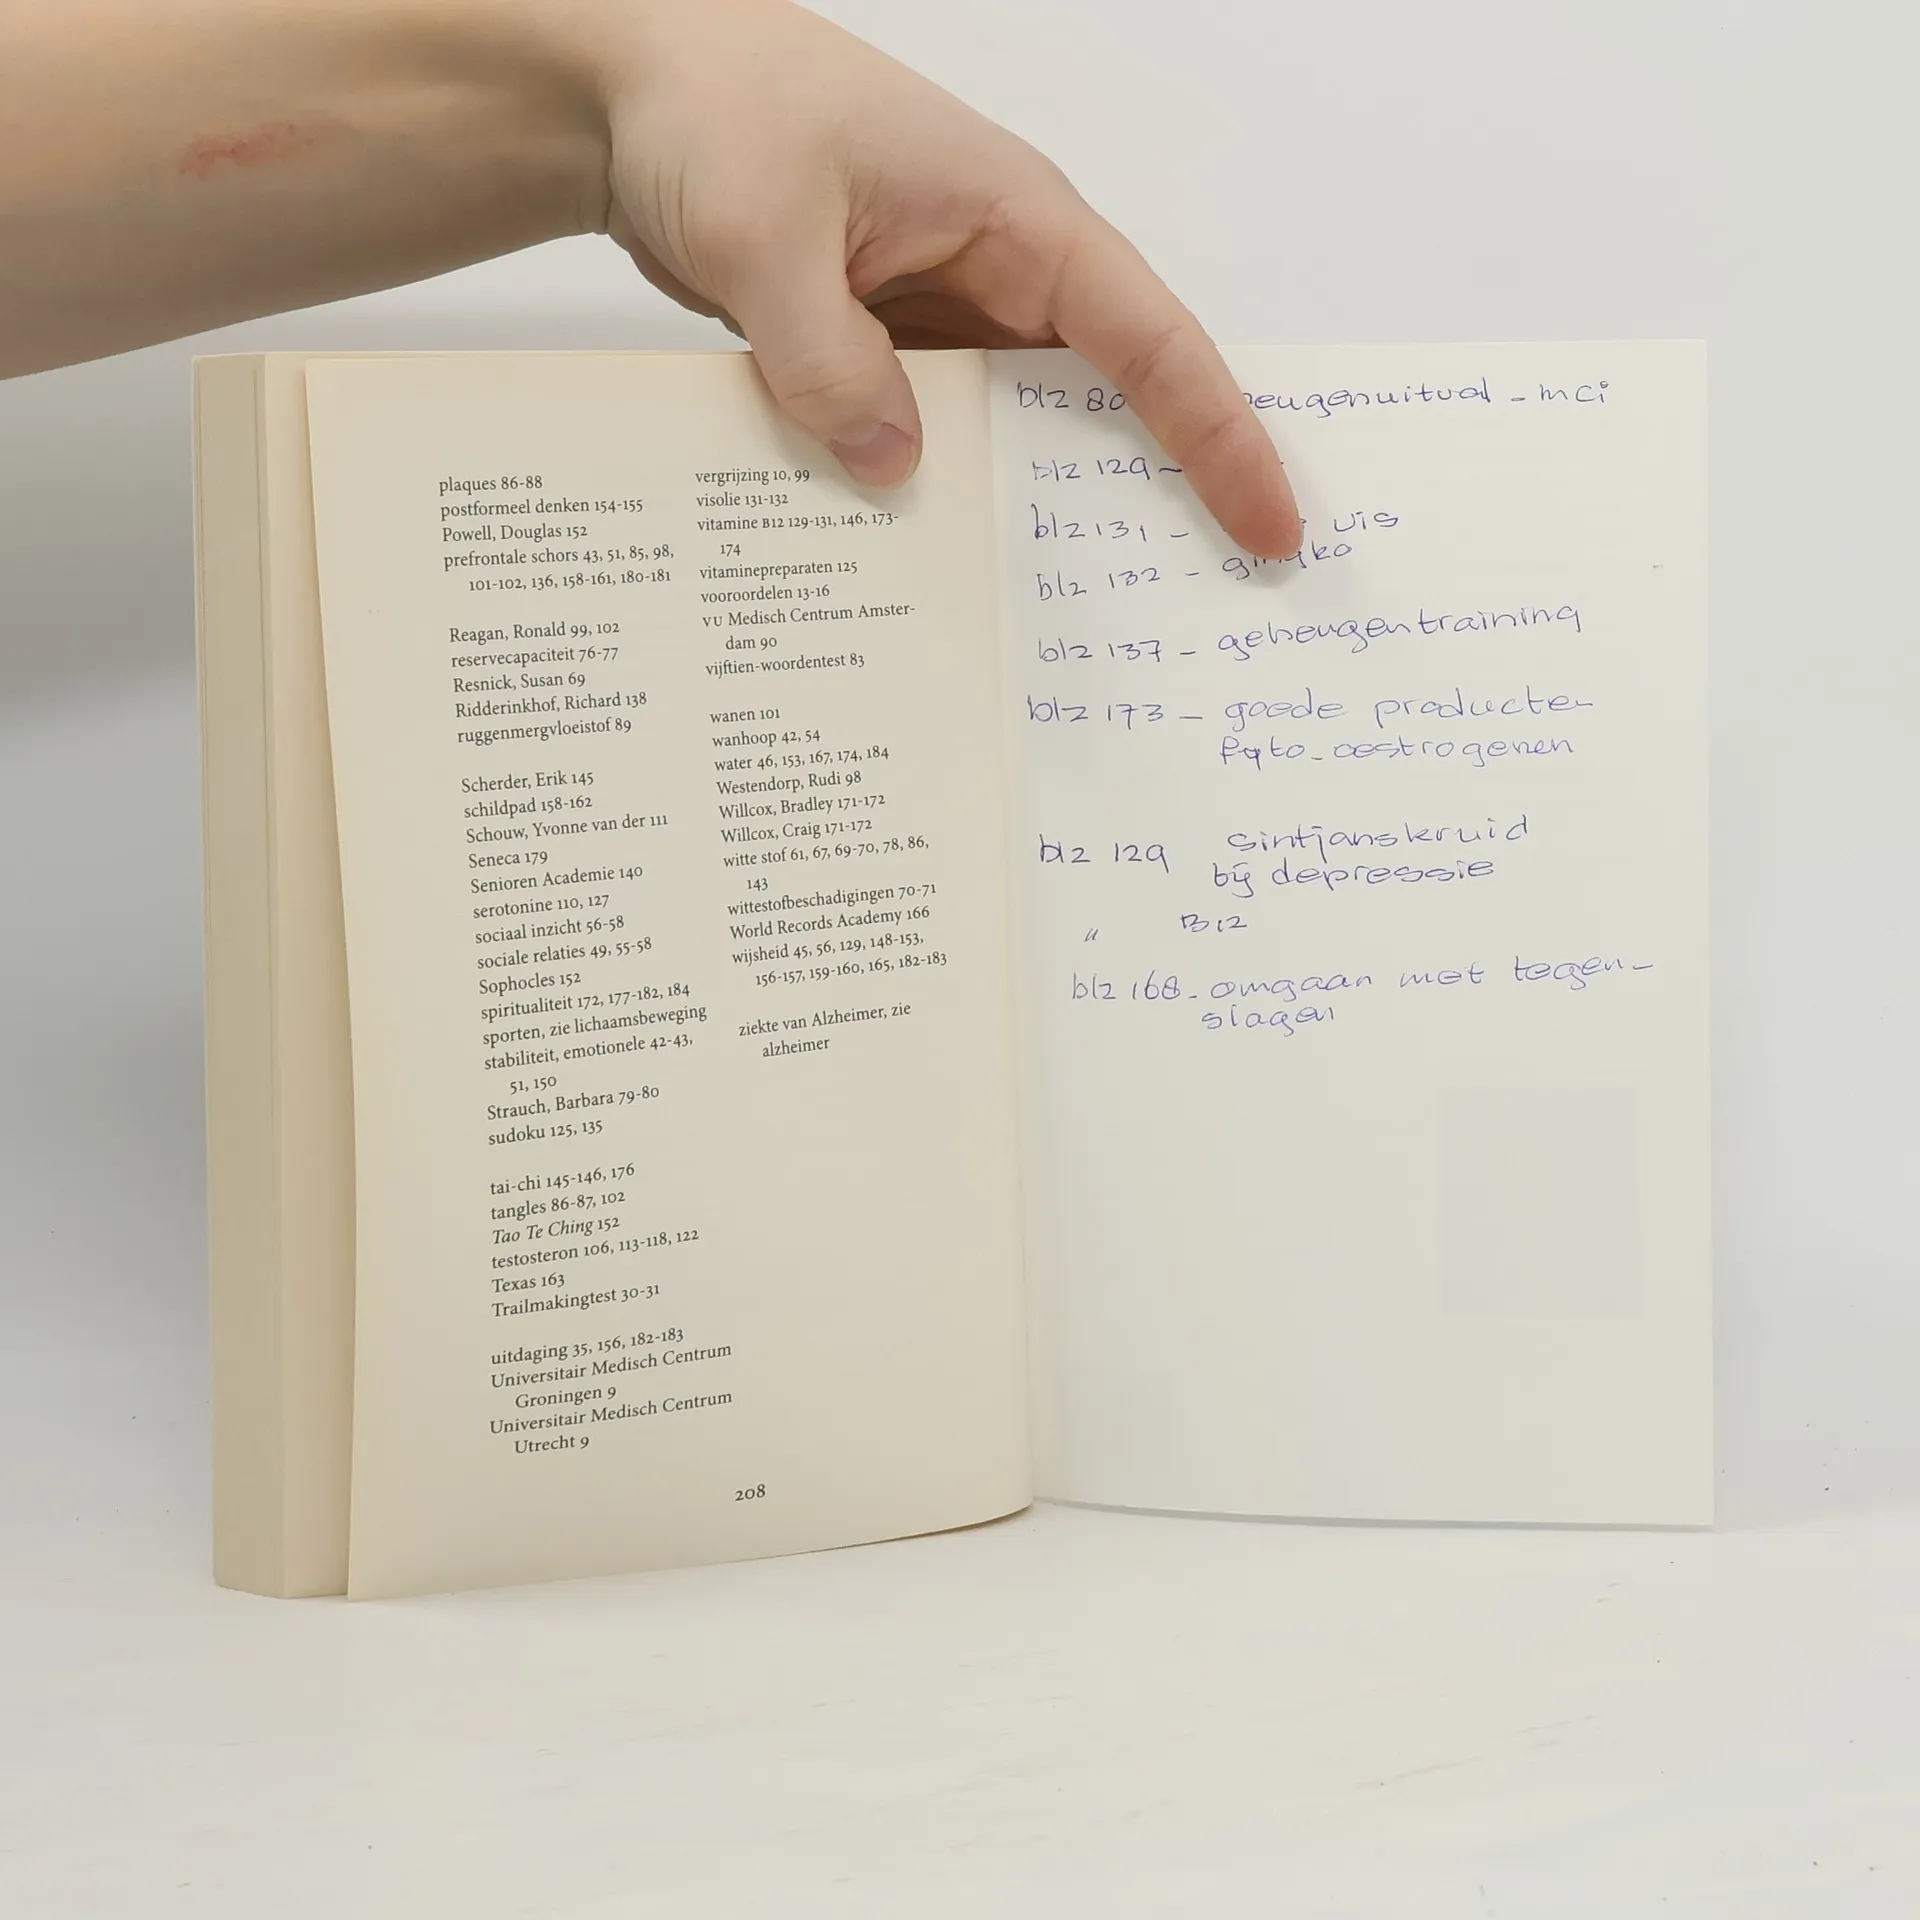 plaques 86-88
postformeel denken 154-155
Powell, Douglas 152
prefrontale schors 43, 51, 85, 98,
101-102, 136, 158-161, 180-181
Reagan, Ronald 99, 102
reservecapaciteit 76-77
Resnick, Susan 69
Ridderinkhof, Richard 138
ruggenmergvloeistof 89
Scherder, Erik 145
schildpad 158-162
Schouw, Yvonne van der 111
Seneca 179
Senioren Academie 140
serotonine 110, 127
sociaal inzicht 56-58
sociale relaties 49, 55-58
Sophocles 152
spiritualiteit 172, 177-182, 184
sporten, zie lichaamsbeweging
stabiliteit, emotionele 42-43,
51, 150
Strauch, Barbara 79-80
sudoku 125, 135
tai-chi 145-146, 176
tangles 86-87, 102
Tao Te Ching 152
testosteron 106, 113-118, 122
Texas 163
Trailmakingtest 30-31
uitdaging 35, 156, 182-183
Universitair Medisch Centrum
Groningen 9
Universitair Medisch Centrum
Utrecht 9
vergrijzing 10, 99
visolie 131-132
vitamine B12 129-131, 146, 173-
174
vitaminepreparaten 125
vooroordelen 13-16
VU Medisch Centrum Amster-
dam 90
vijftien-woordentest 83
wanen 101
wanhoop 42, 54
water 46, 153, 167, 174, 184
Westendorp, Rudi 98
Willcox, Bradley 171-172
Willcox, Craig 171-172
witte stof 61, 67, 69-70, 78, 86,
143
wittestofbeschadigingen 70-71
World Records Academy 166
wijsheid 45, 56, 129, 148-153,
156-157, 159-160, 165, 182-183
ziekte van Alzheimer, zie
alzheimer
208
blz 80 - mci
blz 129 -
blz 131 - vis
blz 132 - gingko
blz 137 - geheugentraining
blz 173 - goede producten
fyto-oestrogenen
blz 129 Sintjanskruid
bij depressie
" B12
blz 168 - omgaan met tegen-
slagen